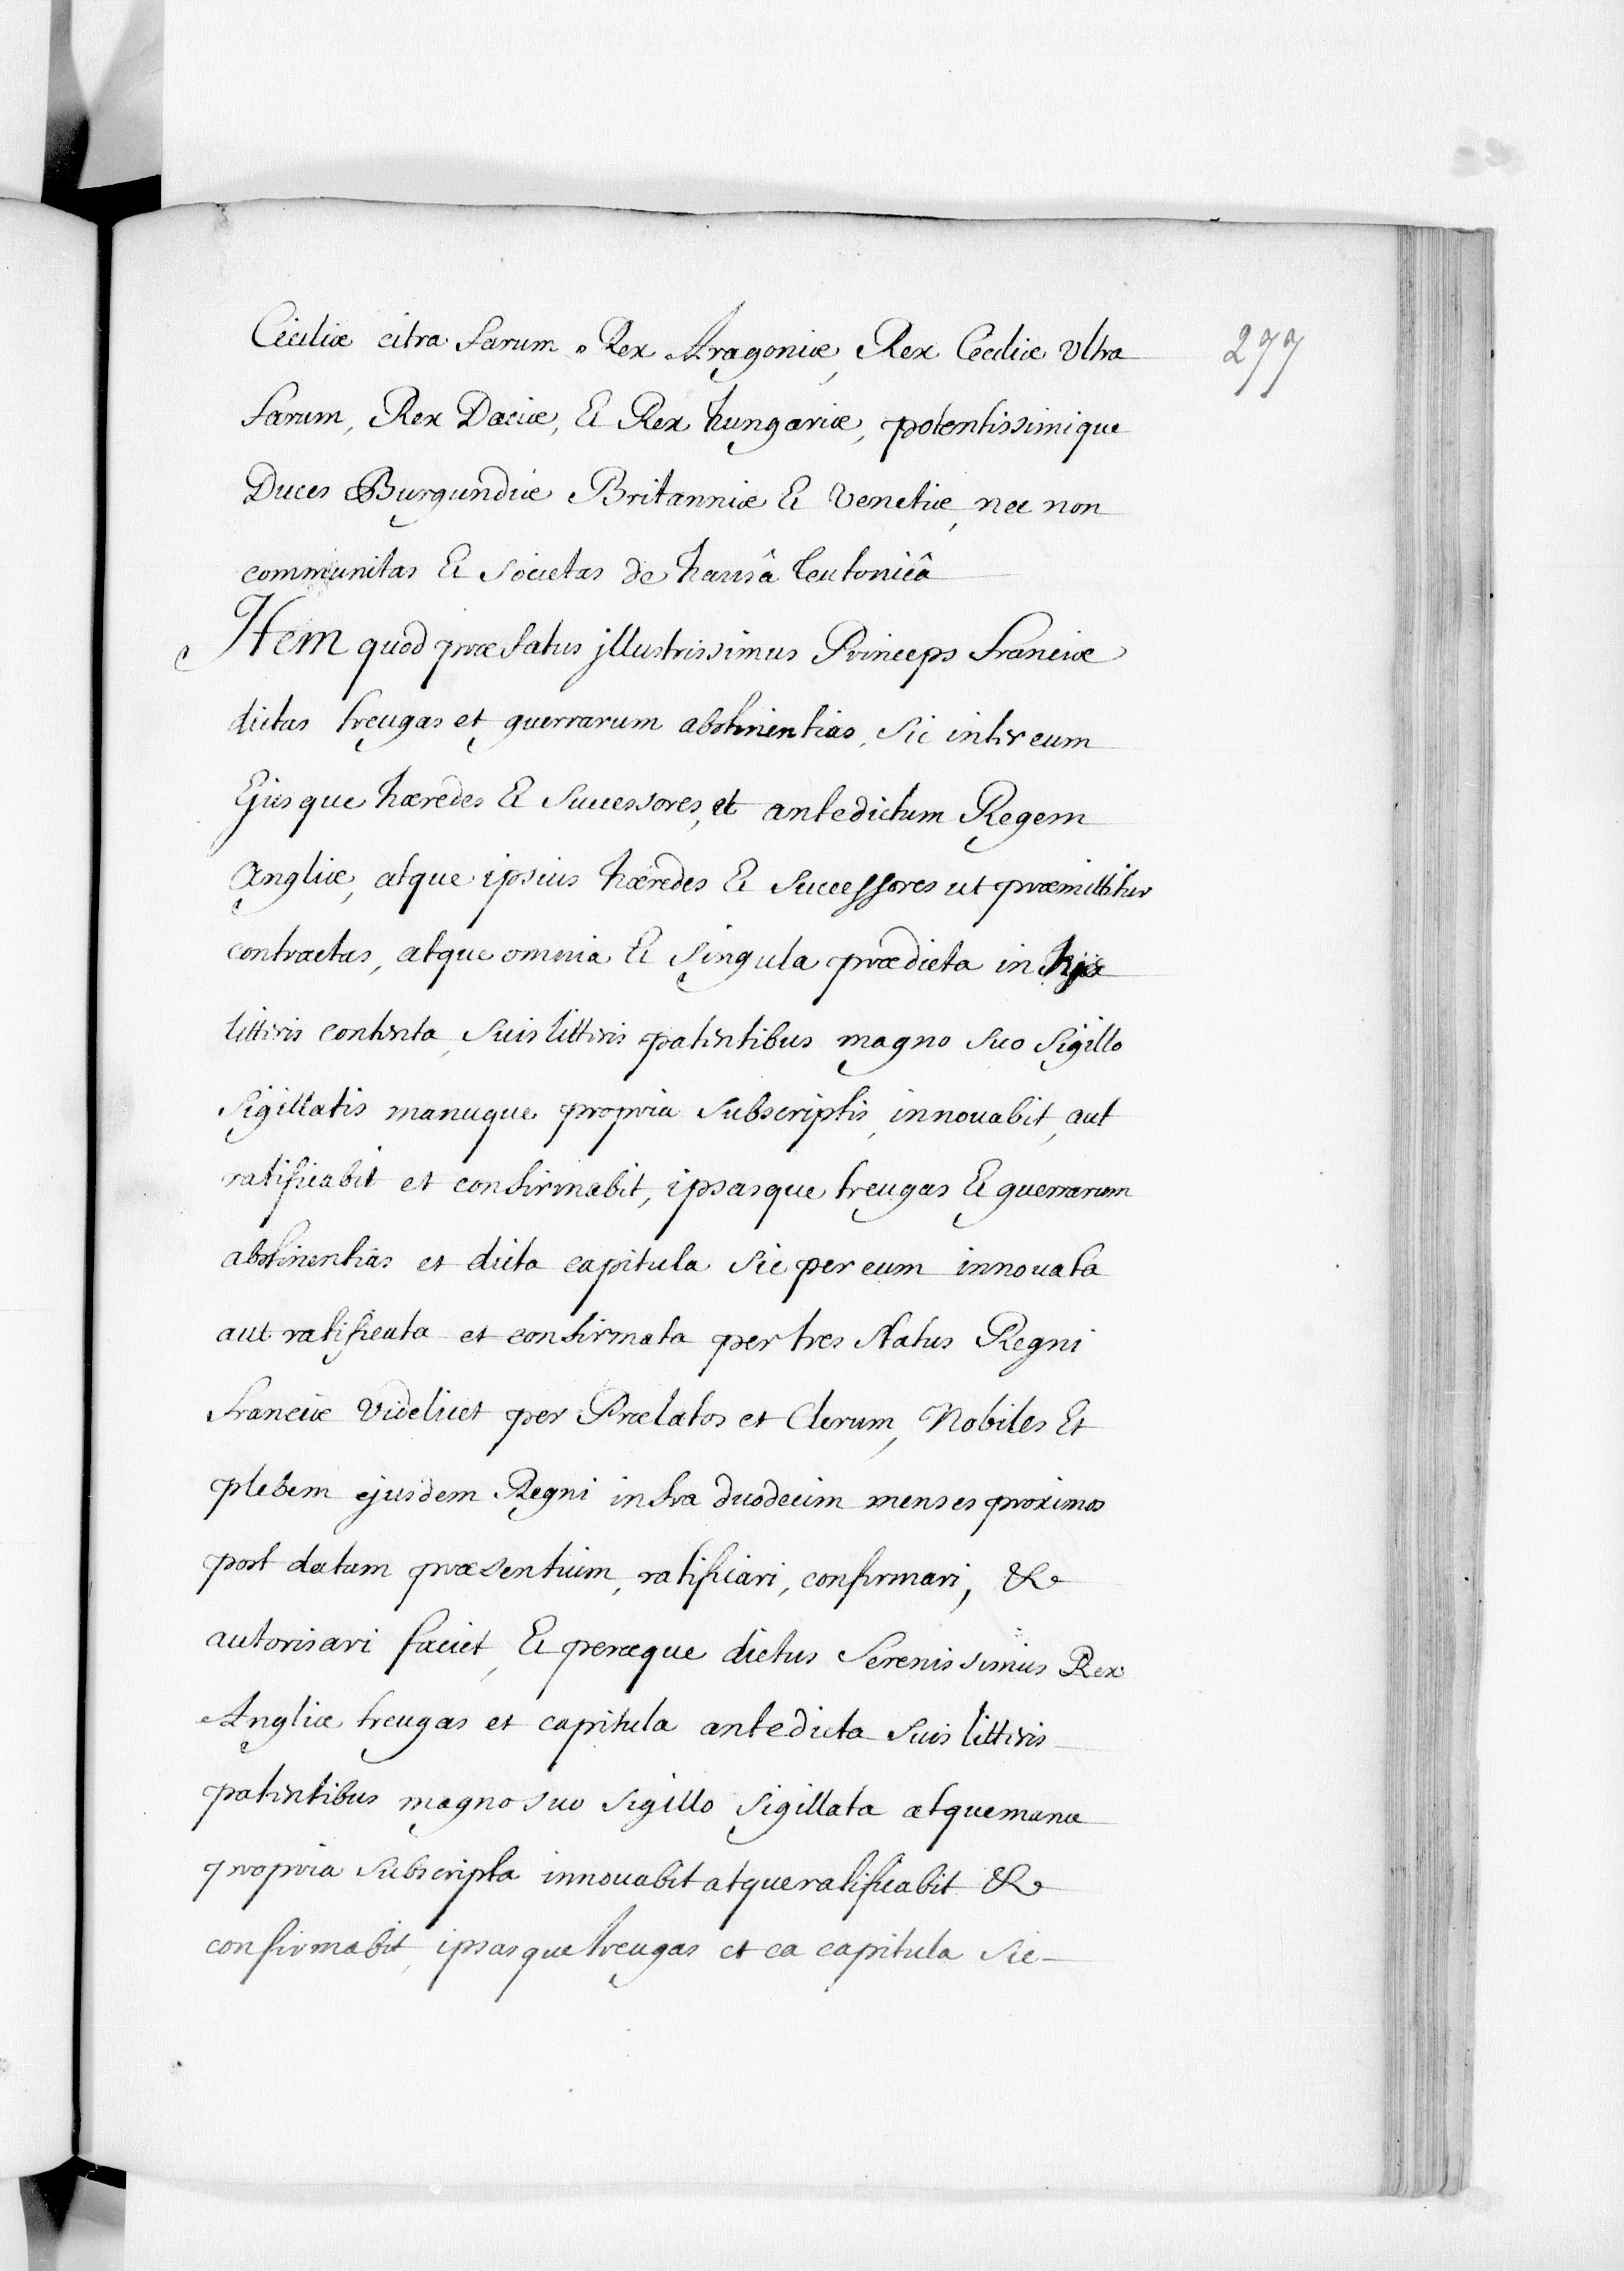 277
Ceciliæ citra farum Rex Aragoniæ, Rex Ceciliæ Ultra
farum, Rex Daciæ, Et Rex hungariæ, potentissimique
Duces Burgundiæ Britanniæ Et Venetiæ, nec non
communitas Et Societas de hansâ teutonicâ
Item quod præfatus jllustrissimus Princeps franciæ
dictas treugas et guerrarum abstinentias, Sic inter eum
Ejusque hæredes Et Successores, et antedictum Regem
Angliæ, atque ipsius hæredes Et Successores ut præmittitur
contractas, atque omnia Et Singula prædicta in hijs
litteris contenta, Suis litteris patentibus magno Suo Sigillo
Sigillatis manuque propria Subscriptis, innouabit, aut
ratificabit et confirmabit, ipsasque treugas Et guerrarum
abstinentias et dicta capitula Sic per eum innouata
aut ratificata et confirmata per tres Status Regni
franciæ Videlicet per Prælatos et Clerum, Nobiles Et
plebem ejusdem Regni infra duodecim menses proximos
post datam præsentium, ratificari, confirmari, &
autorisari faciet, Et peræque dictus Serenissimus Rex
Angliæ treugas et capitula antedicta Suis litteris
patentibus magno suo Sigillo Sigillata atque manu
propria Subscripta innouabit atque ratificabit &
confirmabit, ipsasque treugas et ea capitula Sic